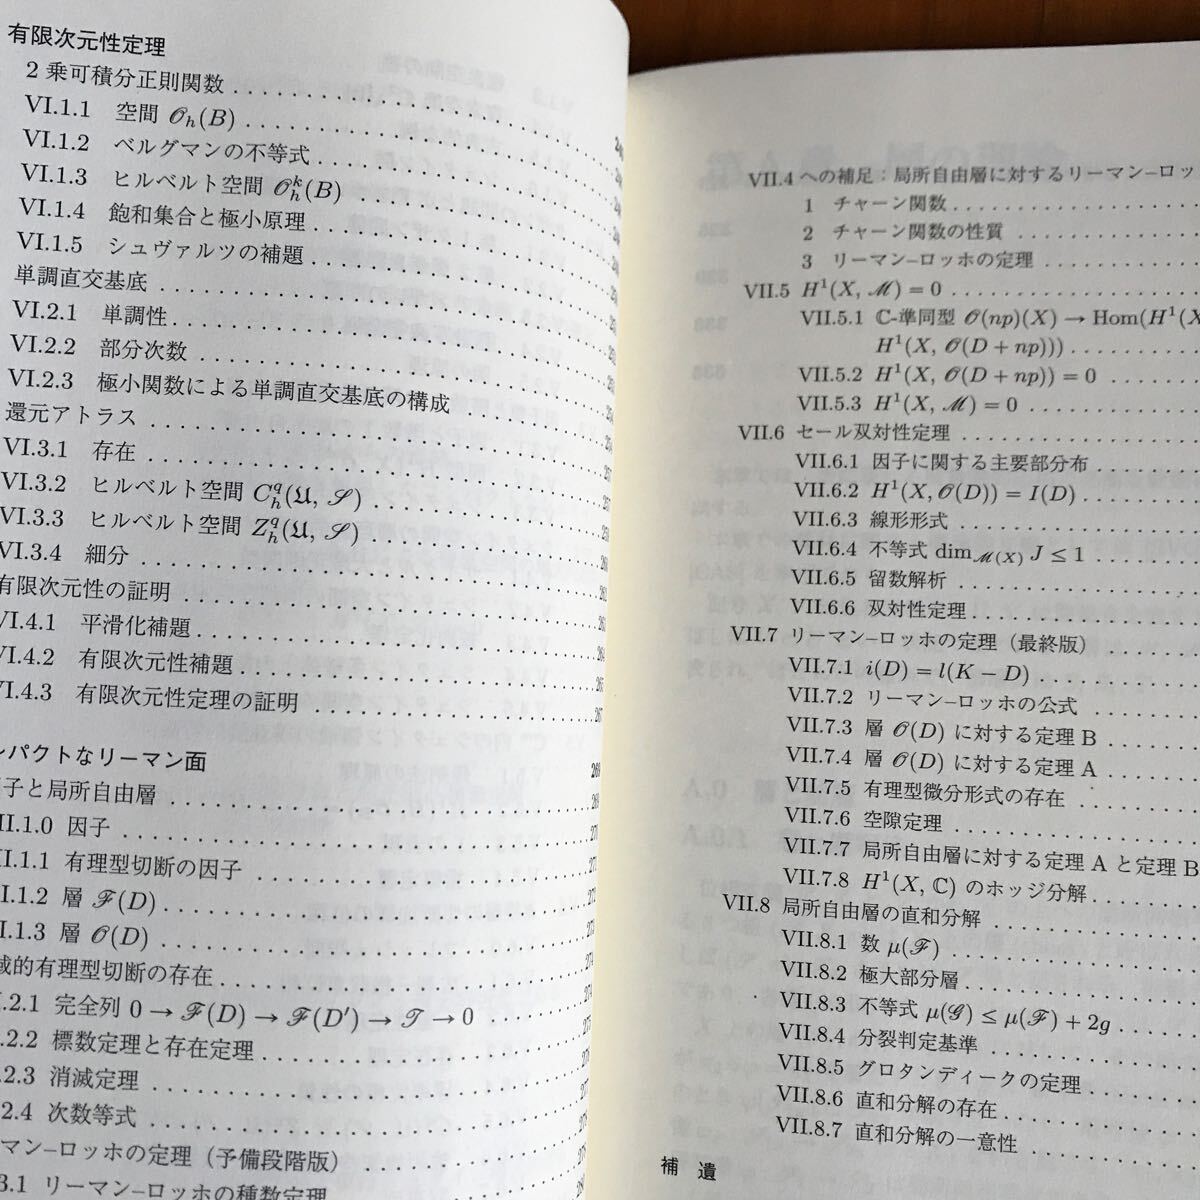 有限次元性定理
2乗可積分正則関数
VI.1.1 空間 𝒪h(B)
VI.1.2 ベルグマンの不等式
VI.1.3 ヒルベルト空間 𝒪ᵏh(B)
VI.1.4 飽和集合と極小原理
VI.1.5 シュヴァルツの補題
単調直交基底
VI.2.1 単調性
VI.2.2 部分次数
VI.2.3 極小関数による単調直交基底の構成
還元アトラス
VI.3.1 存在
VI.3.2 ヒルベルト空間 C^q_h(𝔘, 𝒮)
VI.3.3 ヒルベルト空間 Z^q_h(𝔘, 𝒮)
VI.3.4 細分
有限次元性の証明
VI.4.1 平滑化補題
VI.4.2 有限次元性補題
VI.4.3 有限次元性定理の証明
ンパクトなリーマン面 269
子と局所自由層
II.1.0 因子
II.1.1 有理型切断の因子
I.1.2 層 ℱ(D)
I.1.3 層 𝒪(D)
域的有理型切断の存在
.2.1 完全列 0 → ℱ(D) → ℱ(D′) → 𝒯 → 0
.2.2 標数定理と存在定理
.2.3 消滅定理
2.4 次数等式
マン–ロッホの定理（予備段階版）
3.1 リーマン–ロッホの種数定理
VII.4 への補足：局所自由層に対するリーマン–ロッ
1 チャーン関数
2 チャーン関数の性質
3 リーマン–ロッホの定理
VII.5 H¹(X, ℳ) = 0
VII.5.1 ℂ-準同型 𝒪(np)(X) → Hom(H¹(X
H¹(X, 𝒪(D + np)))
VII.5.2 H¹(X, 𝒪(D + np)) = 0
VII.5.3 H¹(X, ℳ) = 0
VII.6 セール双対性定理
VII.6.1 因子に関する主要部分布
VII.6.2 H¹(X, 𝒪(D)) = I(D)
VII.6.3 線形形式
VII.6.4 不等式 dim_ℳ(X) J ≤ 1
VII.6.5 留数解析
VII.6.6 双対性定理
VII.7 リーマン–ロッホの定理（最終版）
VII.7.1 i(D) = l(K − D)
VII.7.2 リーマン–ロッホの公式
VII.7.3 層 𝒪(D) に対する定理 B
VII.7.4 層 𝒪(D) に対する定理 A
VII.7.5 有理型微分形式の存在
VII.7.6 空隙定理
VII.7.7 局所自由層に対する定理 A と定理 B
VII.7.8 H¹(X, ℂ) のホッジ分解
VII.8 局所自由層の直和分解
VII.8.1 数 μ(ℱ)
VII.8.2 極大部分層
VII.8.3 不等式 μ(𝒢) ≤ μ(ℱ) + 2g
VII.8.4 分裂判定基準
VII.8.5 グロタンディークの定理
VII.8.6 直和分解の存在
VII.8.7 直和分解の一意性
補 遺